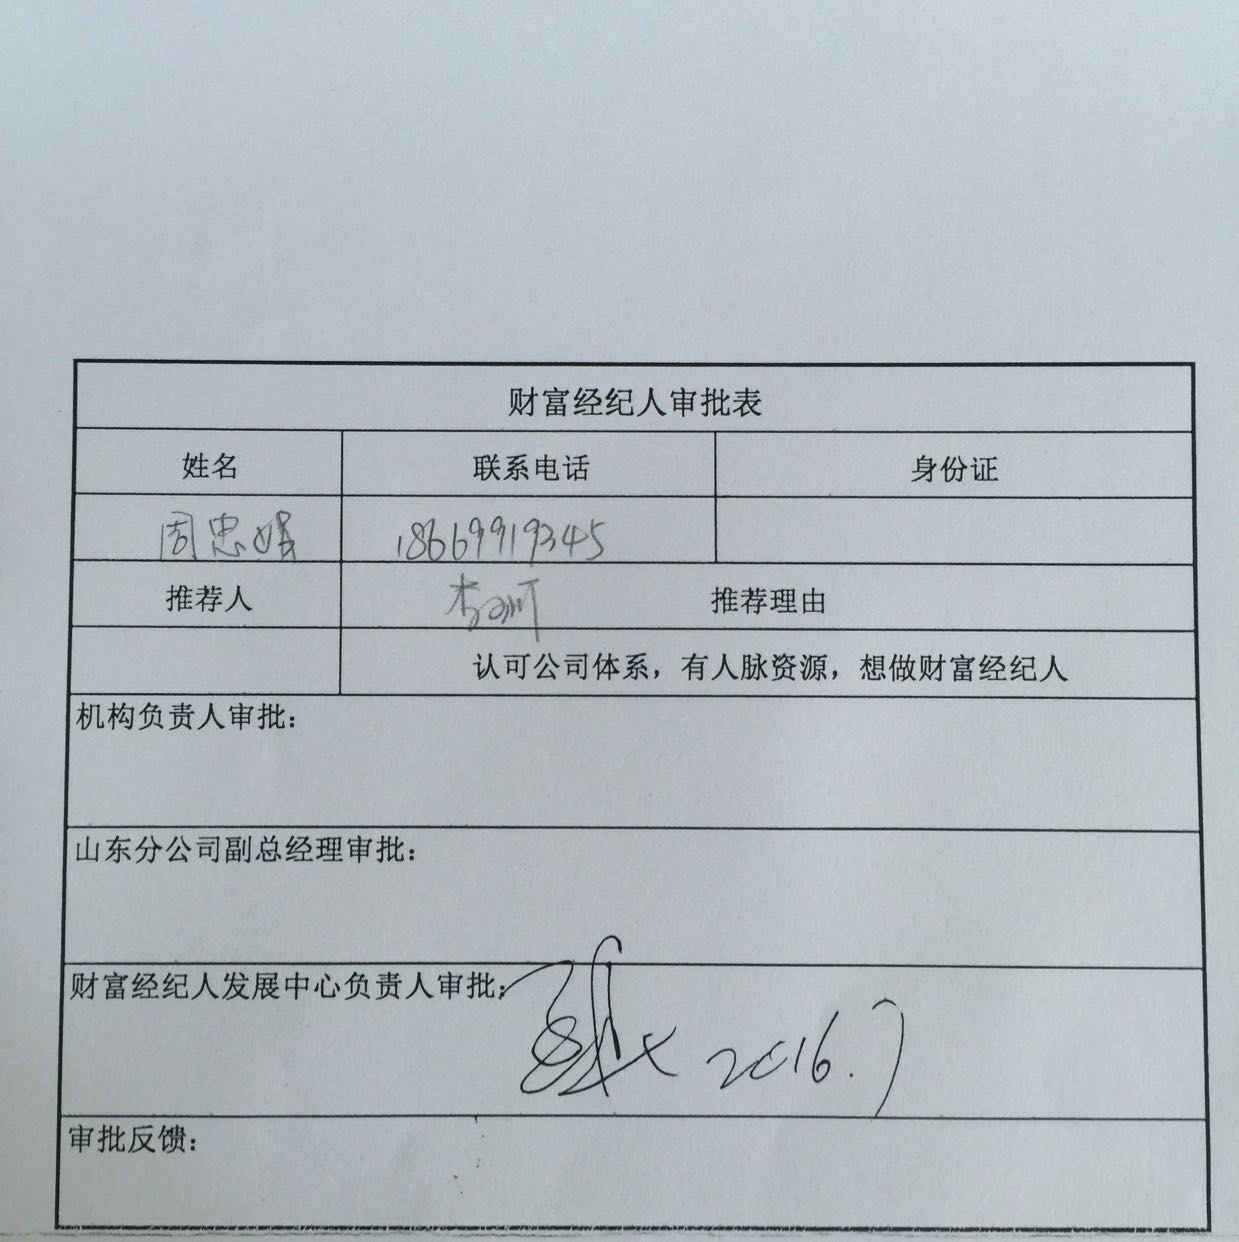 财富经纪人审批表
姓名 联系电话 身份证
周忠娟 18669919345
推荐人 李 推荐理由
认可公司体系，有人脉资源，想做财富经纪人
机构负责人审批：
山东分公司副总经理审批：
财富经纪人发展中心负责人审批：
2016.7
审批反馈：